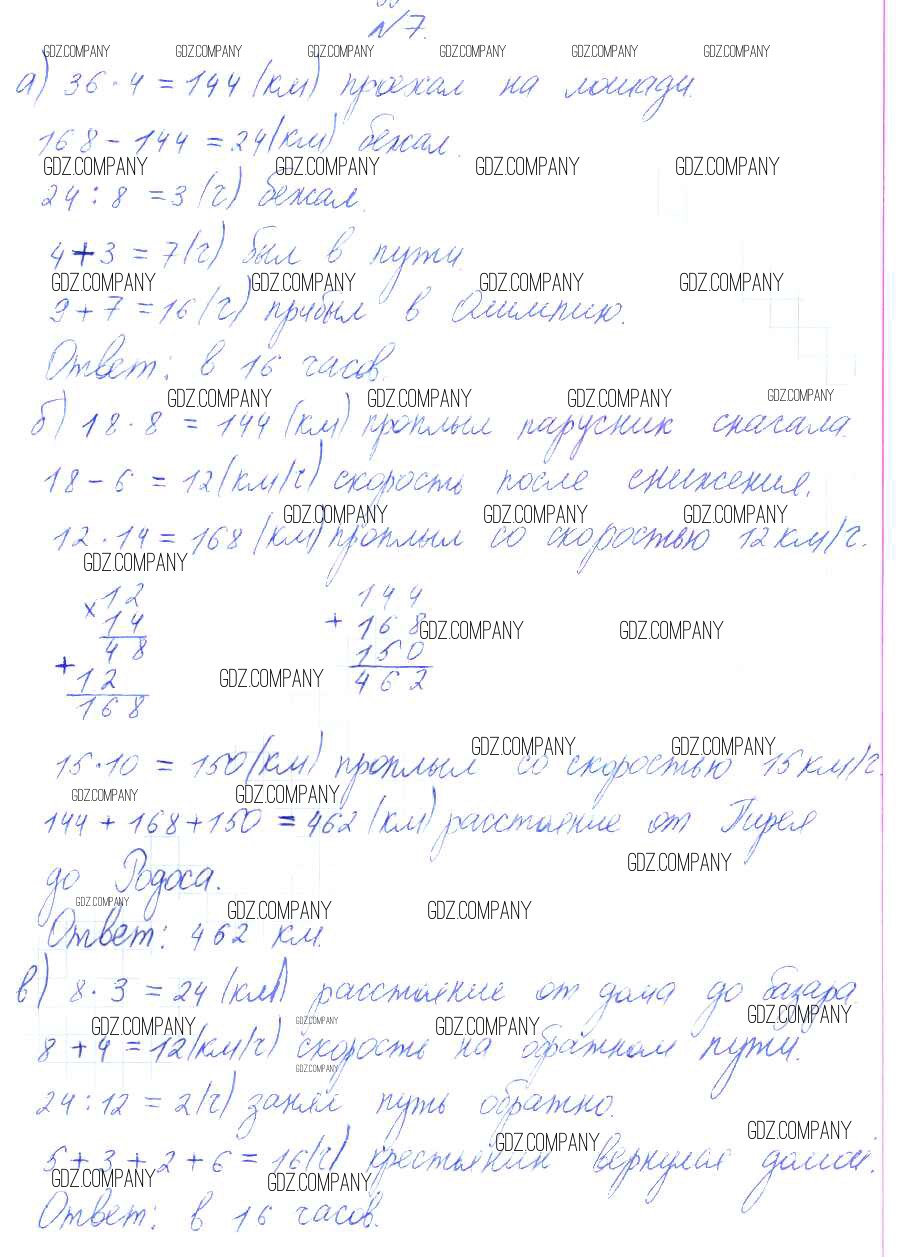 №7.
GDZ.COMPANY GDZ.COMPANY GDZ.COMPANY GDZ.COMPANY GDZ.COMPANY GDZ.COMPANY
а) 36 · 4 = 144 (км) проехал на лошади.
168 - 144 = 24 (км) бежал.
GDZ.COMPANY GDZ.COMPANY GDZ.COMPANY GDZ.COMPANY
24 : 8 = 3 (ч) бежал.
4 + 3 = 7 (ч) был в пути.
GDZ.COMPANY GDZ.COMPANY GDZ.COMPANY GDZ.COMPANY
9 + 7 = 16 (ч) прибыл в Олимпию.
Ответ: в 16 часов.
GDZ.COMPANY GDZ.COMPANY GDZ.COMPANY GDZ.COMPANY
б) 18 · 8 = 144 (км) проплыл парусник сначала.
18 - 6 = 12 (км/ч) скорость после снижения.
GDZ.COMPANY GDZ.COMPANY GDZ.COMPANY
12 · 14 = 168 (км) проплыл со скоростью 12 км/ч.
GDZ.COMPANY
× 12 144
14 + 168
GDZ.COMPANY GDZ.COMPANY
48 150
+ 12 462
GDZ.COMPANY
168
GDZ.COMPANY GDZ.COMPANY
15 · 10 = 150 (км) проплыл со скоростью 15 км/ч.
GDZ.COMPANY GDZ.COMPANY
144 + 168 + 150 = 462 (км) расстояние от Пирея
GDZ.COMPANY
до Родоса.
GDZ.COMPANY GDZ.COMPANY GDZ.COMPANY
Ответ: 462 км.
в) 8 · 3 = 24 (км) расстояние от дома до базара.
GDZ.COMPANY GDZ.COMPANY GDZ.COMPANY GDZ.COMPANY
8 + 4 = 12 (км/ч) скорость на обратном пути.
GDZ.COMPANY
24 : 12 = 2 (ч) занял путь обратно.
GDZ.COMPANY GDZ.COMPANY
5 + 3 + 2 + 6 = 16 (ч) крестьянин вернулся домой.
GDZ.COMPANY GDZ.COMPANY
Ответ: в 16 часов.